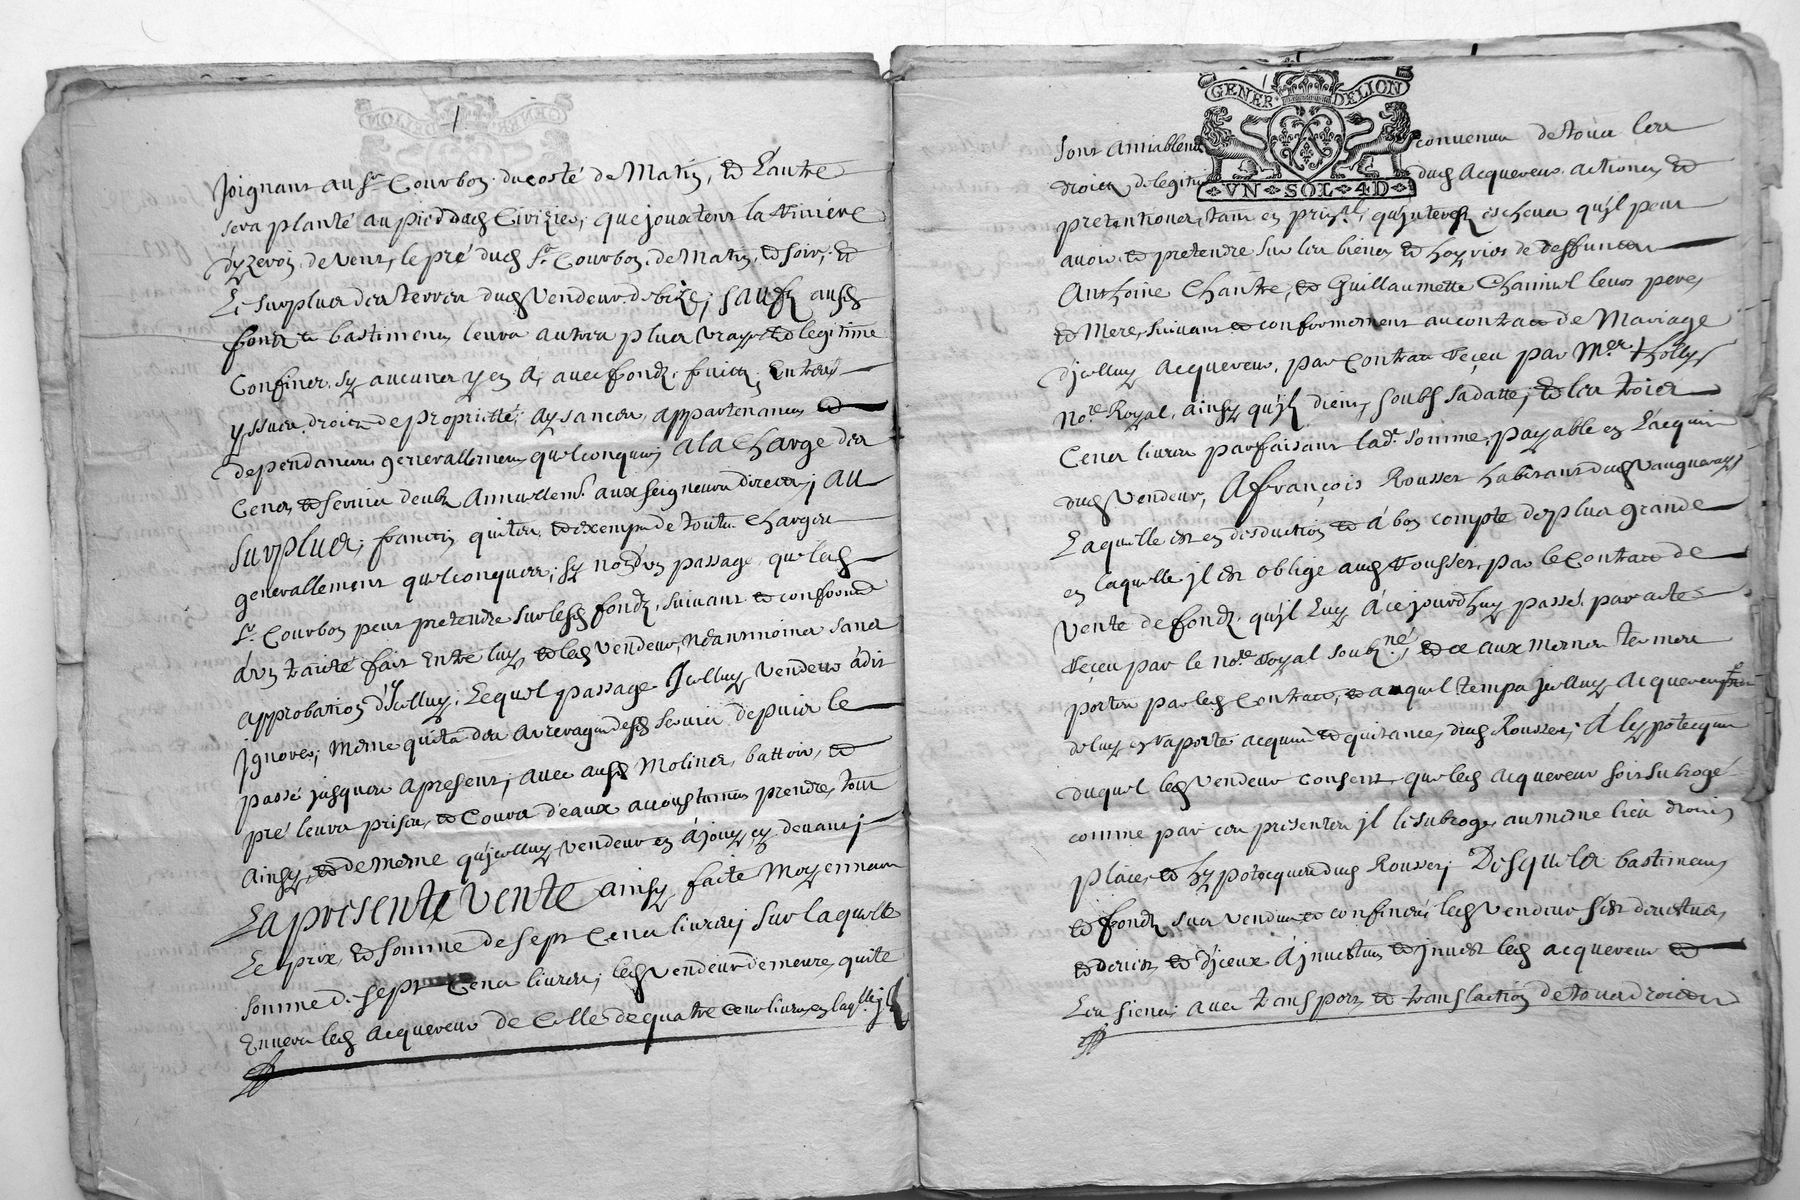 Joignant au Sr. Courbon du costé de Matin, et L'autre
sera planté au pied dud Civizier, que jouxtent la riviere
d'yzeron de vent, le pré dud Sr. Courbon de Matin et soir, et
Le surplus des terres dud Vendeur de bize, sauf ausd
fonds et bastimens leurs autres plus vrays et legitime
Confines sy aucunes y en a, avec fonds, fruicts, Entrées
yssues, droits de proprieté, aysances, appartenances et
dependances generallement quelconques, a la charge des
Cens et servis deubs Annuellemt. aux seigneurs directs, au
surplus, francs quites et exempts de toutes charges
generallement quelconques, sy non d'un passage que led
Sr. Courbon peut pretendre sur lesd fonds, suivant et conformé
d'un traité fait Entre luy et led Vendeur, neantmoines sans
approbation d'Jcelluy, Lequel passage Jcelluy Vendeur a dit
Jgnorer, meme quites des arrerages desd servis depuis le
passé jusques a present, avec ausd Molines, battoir, et
pré leurs prises et Cours d'eaux accoustumés prendre, tout
ainsy et de meme qu'jcelluy Vendeur en a jouy cy devant,
La presente Vente ainsy faite Moyennant
Le prix et somme de sept Cens livres, sur laquelle
somme de sept Cens livres, led Vendeur demeure quite
Envers led Acquereur de Celle de quatre cens livres en laqlle. jls
GENER DE LION
VN SOL 4D
sont amiablemt convenus de tous les
droits de legitime dud Acquereur actiones et
pretentiones, tant en prinal. qu'interests escheus qu'jl peut
avoir et pretendre sur les bienes et hoyries de deffuncts
Anthoine Chantre, et Guillaumette Chamel leurs pere
et Mere, suivant et conformement au contract de Mariage
d'jcelluy Acquereur, par Contract receu par Mer. Tholly
Nore. Royal, ainsy qu'jls dient, soubs sa datte, et les trois
Cens livres parfaisant lad. somme, payable en L'acquit
dud Vendeur, A françois Rousset habitant dud Vaugneray
Laquelle est en desduction et a bon compte de plus grande
en laquelle jl est obligé aud Rousset, par le Contract de
Vente de fonds qu'jl Luy a cejourd'huy passé par acte
receu par le nore. royal soubné, et ce aux memes termes
portés par led Contract, et auquel temps jcelluy Acquereur
de luy en raporter acquit et quitance dud Rousset, A l'hypoteque
duquel led Vendeur consent que led Acquereur soit subrogé
comme par ces presentes jl le subroge au meme lieu droits
place et hypoteques dud Rousset, Desquels bastimens
et fonds sus vendus et confinés led Vendeur s'est devestus,
et devest et d'jceux a jnvestus et jnvest led acquereur et
Les siens, avec transport et translation de tous droits